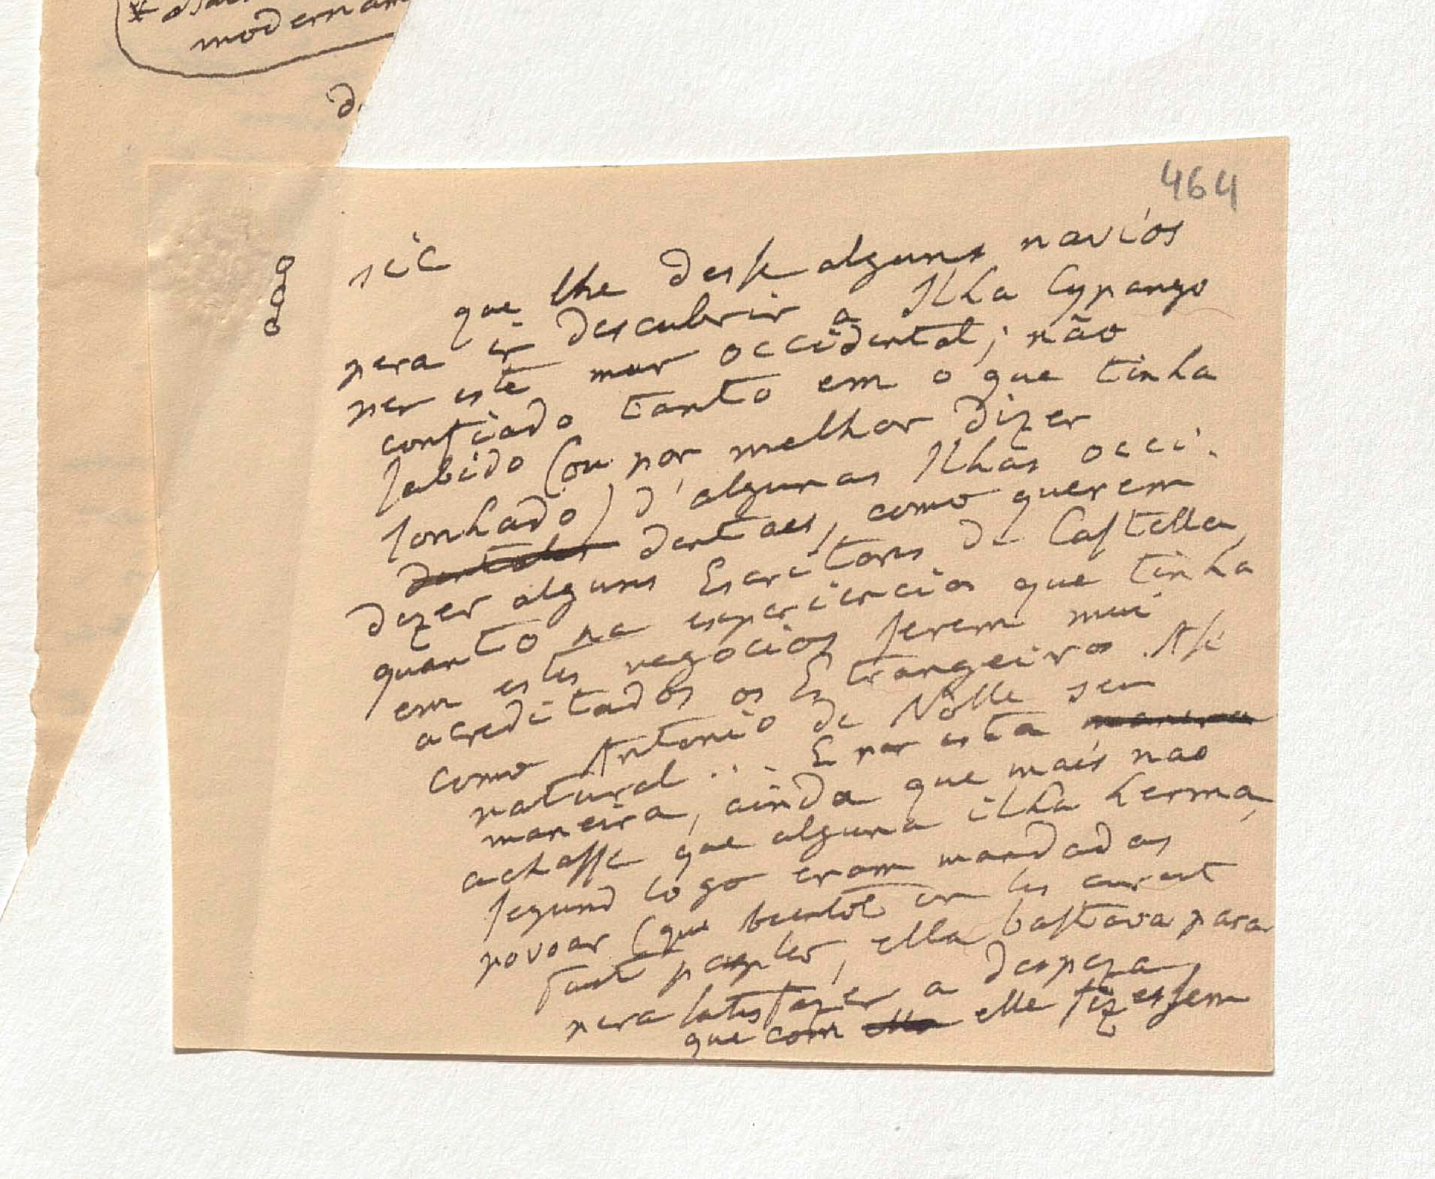 modernam
d.
464
sic
que lhe desse alguns navios
pera ir descubrir a Ilha Cypango
per este mar occidental; não
confiado tanto em o que tinha
sabido (ou por melhor dizer
sonhado) d'algunas Ilhas occi-
dentales dentaes, como querem
dizer alguns Escritores de Castella,
quanto na experiencia que tinha
em estes negocios serem mui
acreditados os Estrangeiros. Assi
como Antonio de Nolle seu
natural... E por esta manera
maneira, ainda que mais nao
achasse que alguna ilha herma,
segund logo eram mandadas
povoar (que bientôt on les auroit
fait peupler, ella bastava para
pera satisfazer a despeza
que com ella elle fizessem